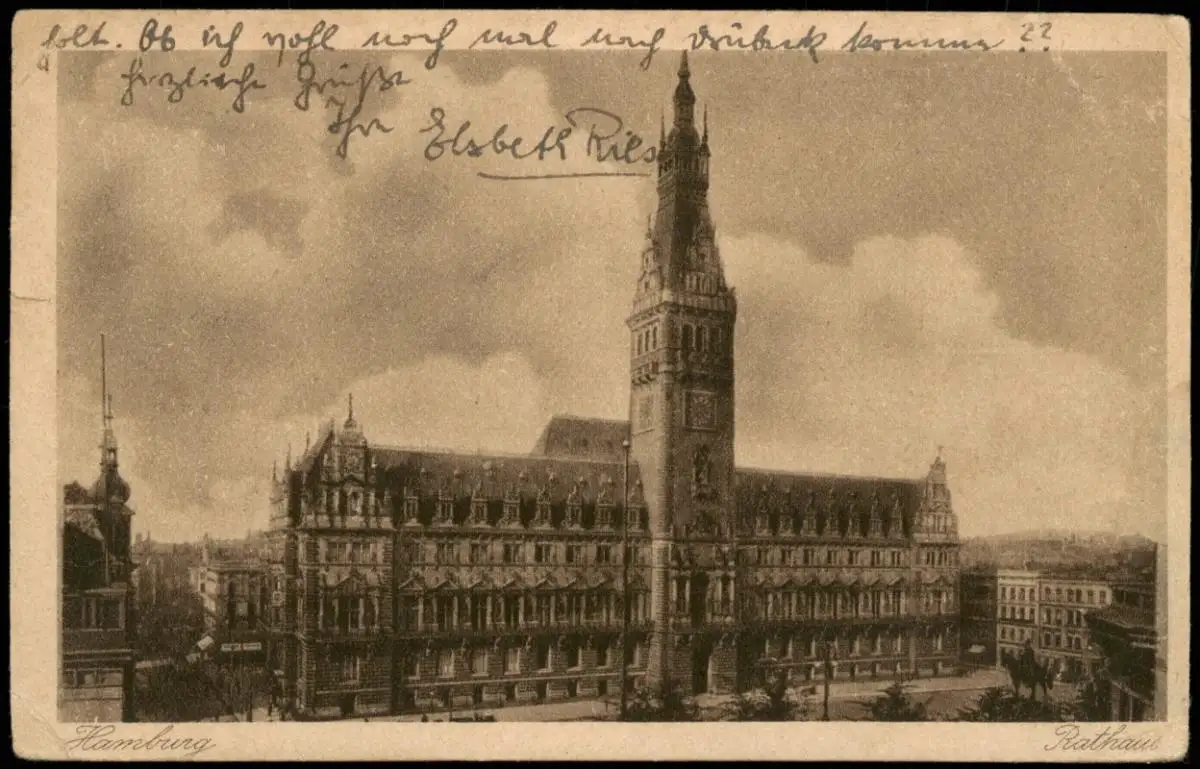 folt. Ob ich wohl noch mal nach Drübeck komme??
Herzliche Grüße
Ihre Elsbeth Ries
Hamburg
Rathaus